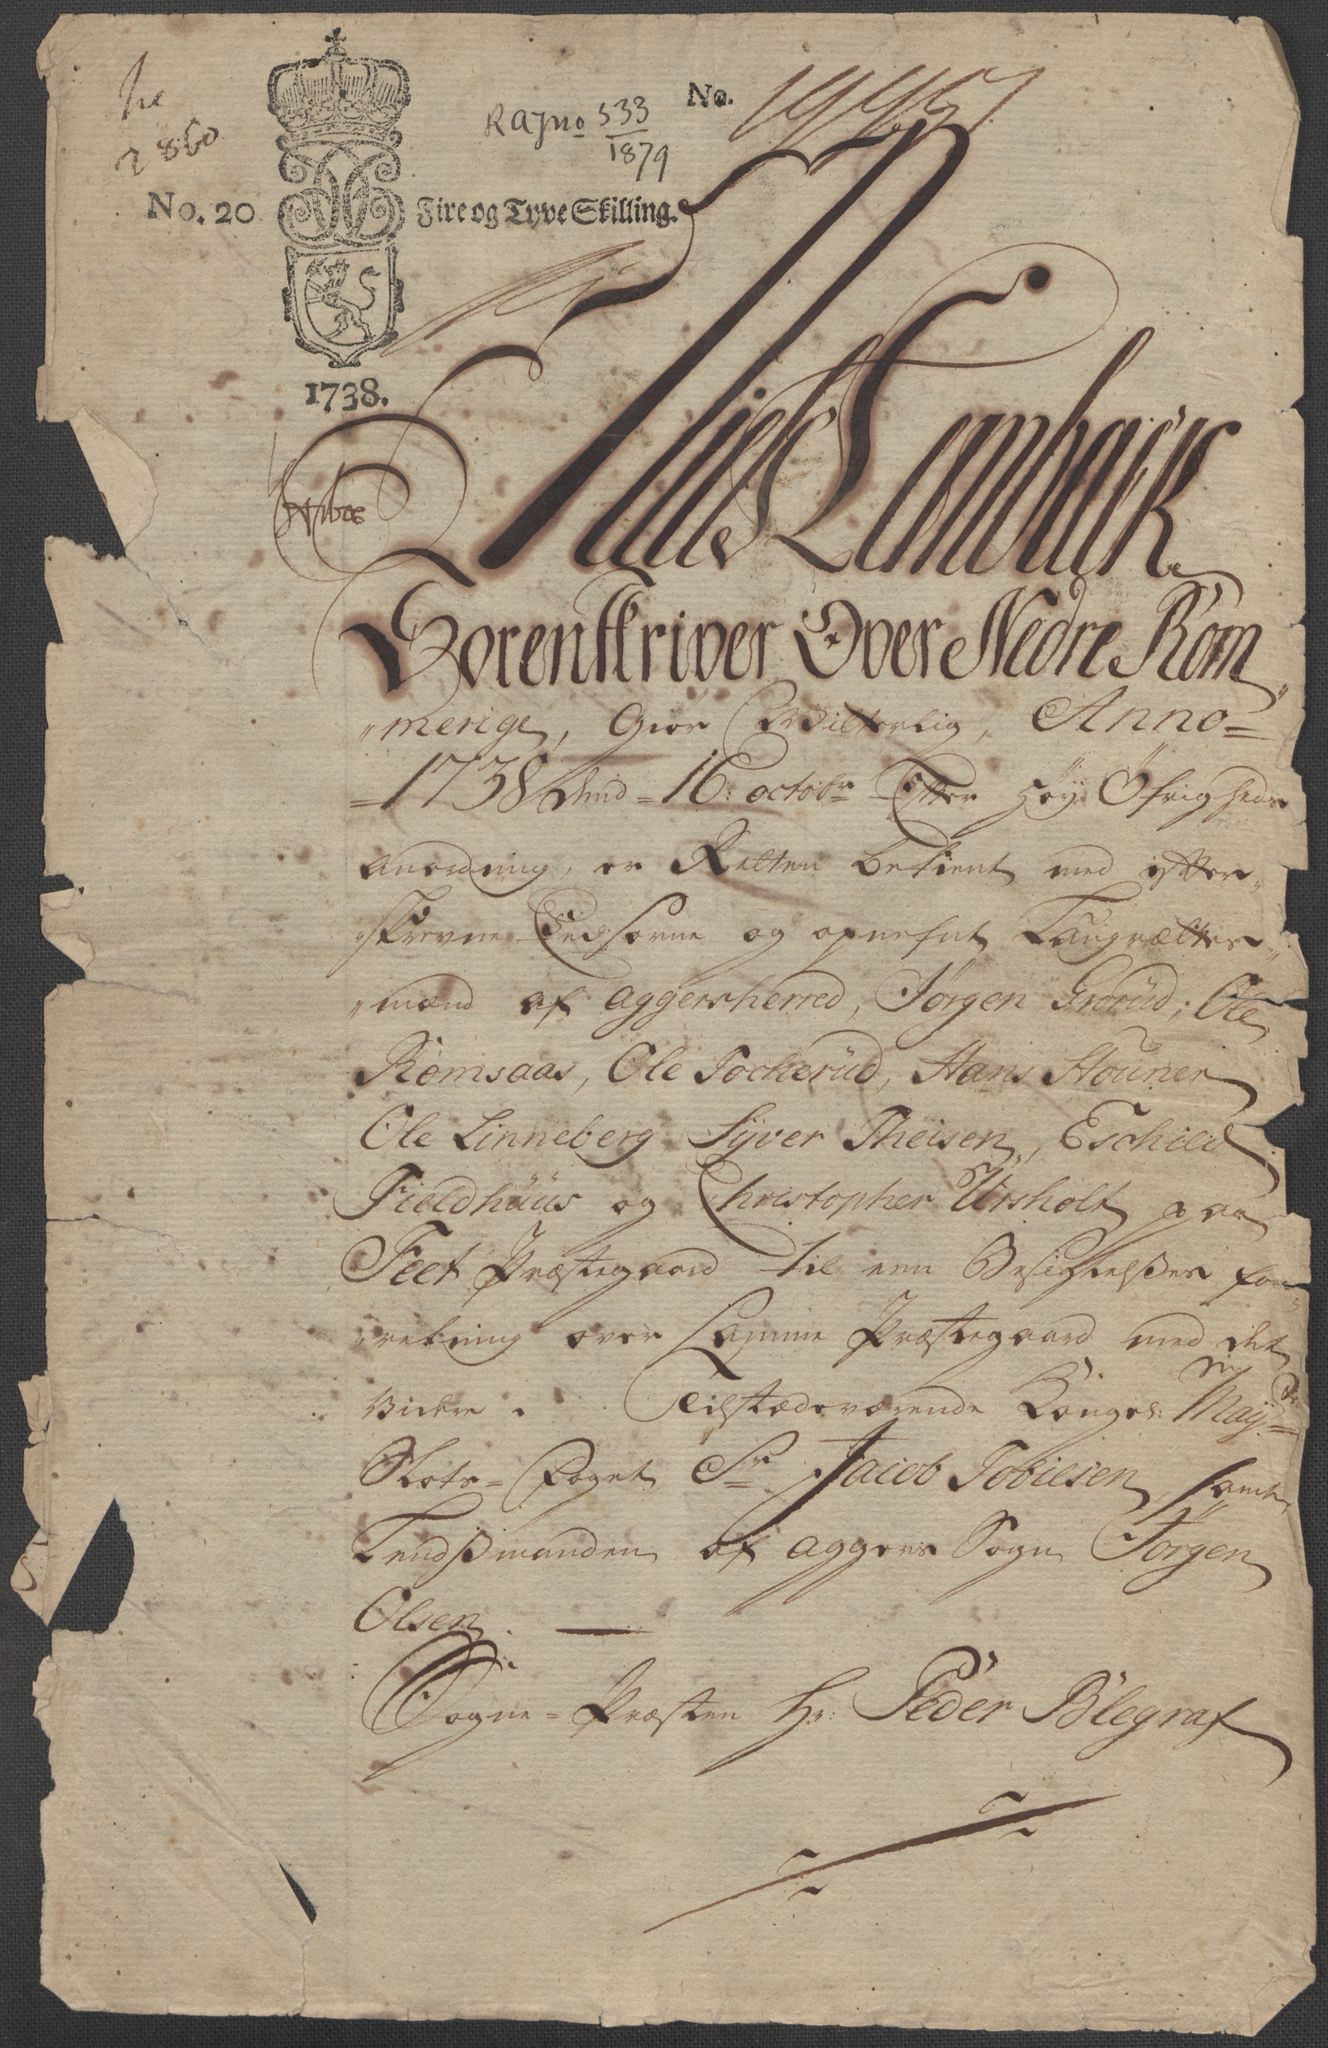 RA Jno 533
1879
No.
2860
No. 20
Fire og Tyve Skilling.
1738.
Niels Lembach
Sorenskriver Over Nedre Rom„
„merige, Giør Witterlig, Anno=
=1738 dend =16: octobr Efter Høy Øfrigheds
anordning, er Retten betient med efter„
„skrefne Eedsorne og opnefnt Laugrættes„
„mænd af Aggersherred, Jørgen Grorüd, Ole
Romsaas, Ole Tocherüd, Hans Stouner
Ole Linneberg Syver Theisen, Eschild
Fieldhüüs og Christopher Ursholt paa
Feet Præstegaard til een Besigtelses for„
„retning over Samme Præstegaard med det
Videre. Tilstædeværende Konges: May:
Slots=Foget Sr Jacob Tobiesen, samt
Lendsmanden af Aggers Sogn Jørgen
Olsen. —
Sogne=Præsten Hr: Peder Blegraf